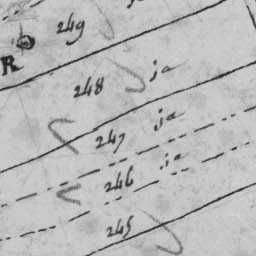 249
R
248 ja
247 ja
246 ja
245